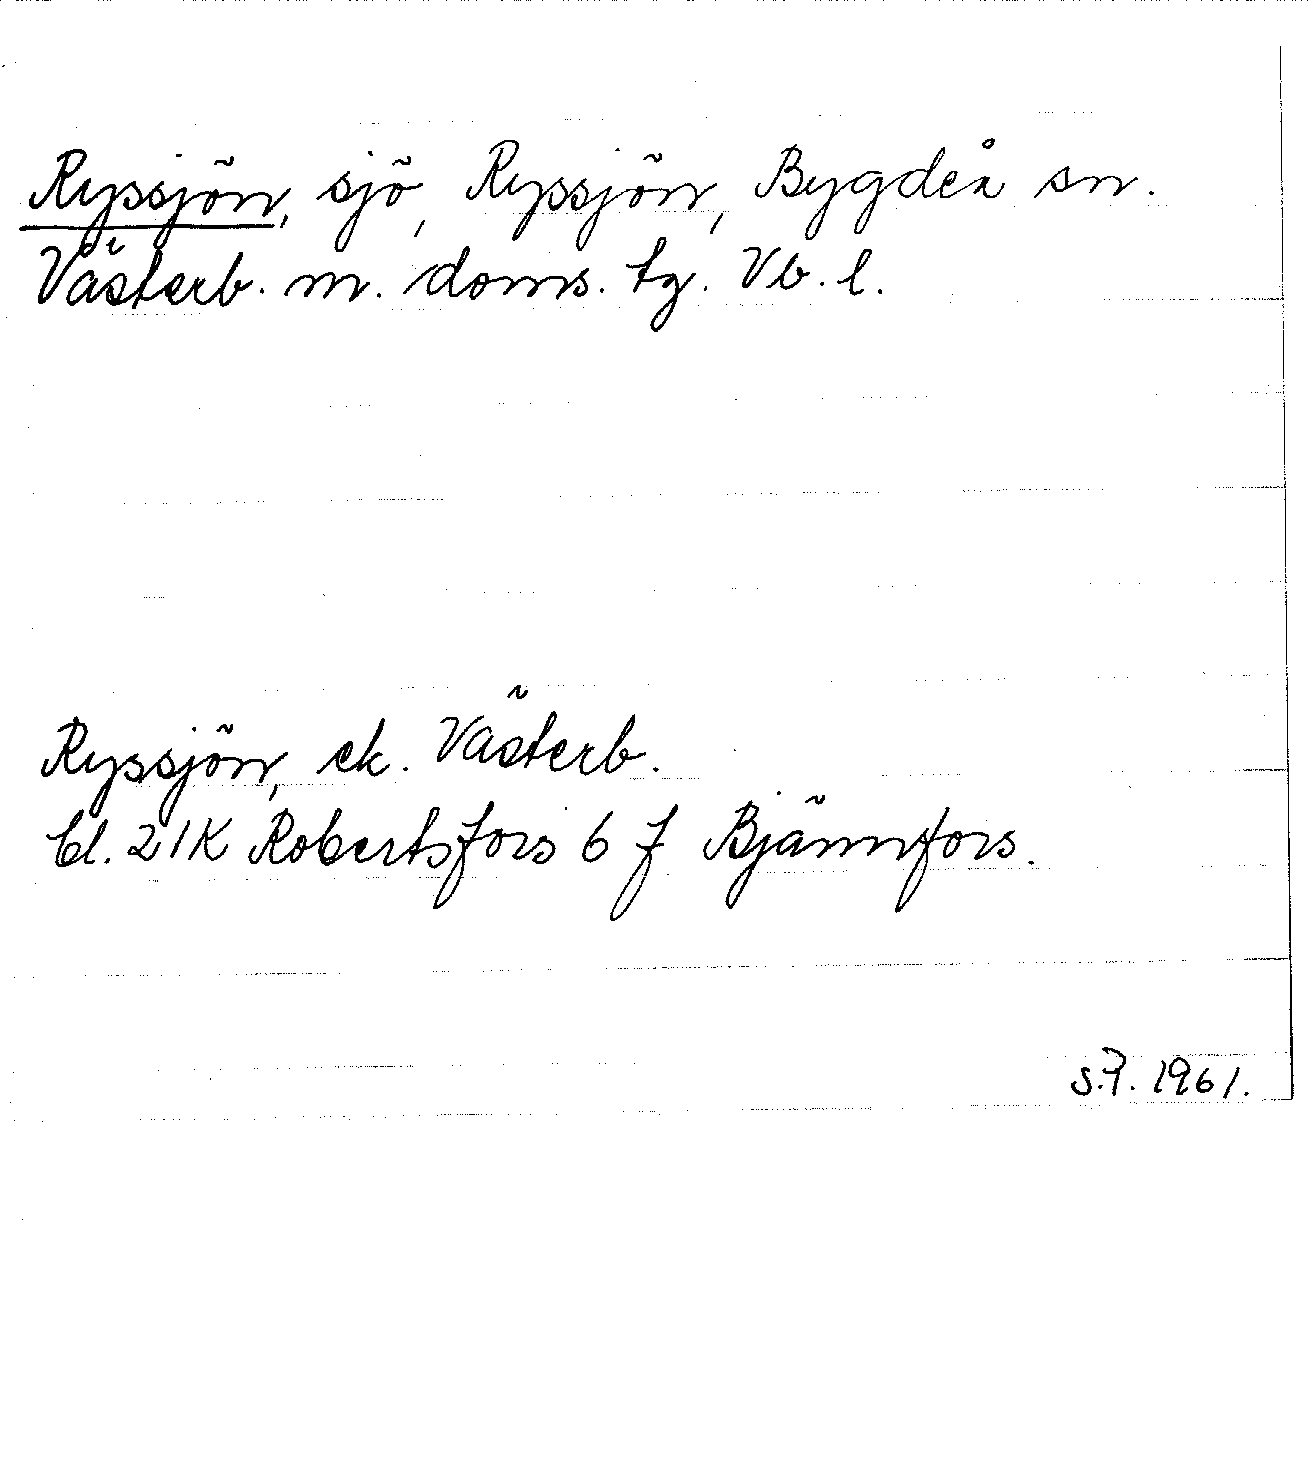 Ryssjön, sjö, Ryssjön, Bygdeå sn.
Västerb. m. doms. tg. Vb. l.
Ryssjön, ek. Västerb.
bl. 21K Robertsfors 6 f Bjännfors.
S.F. 1961.